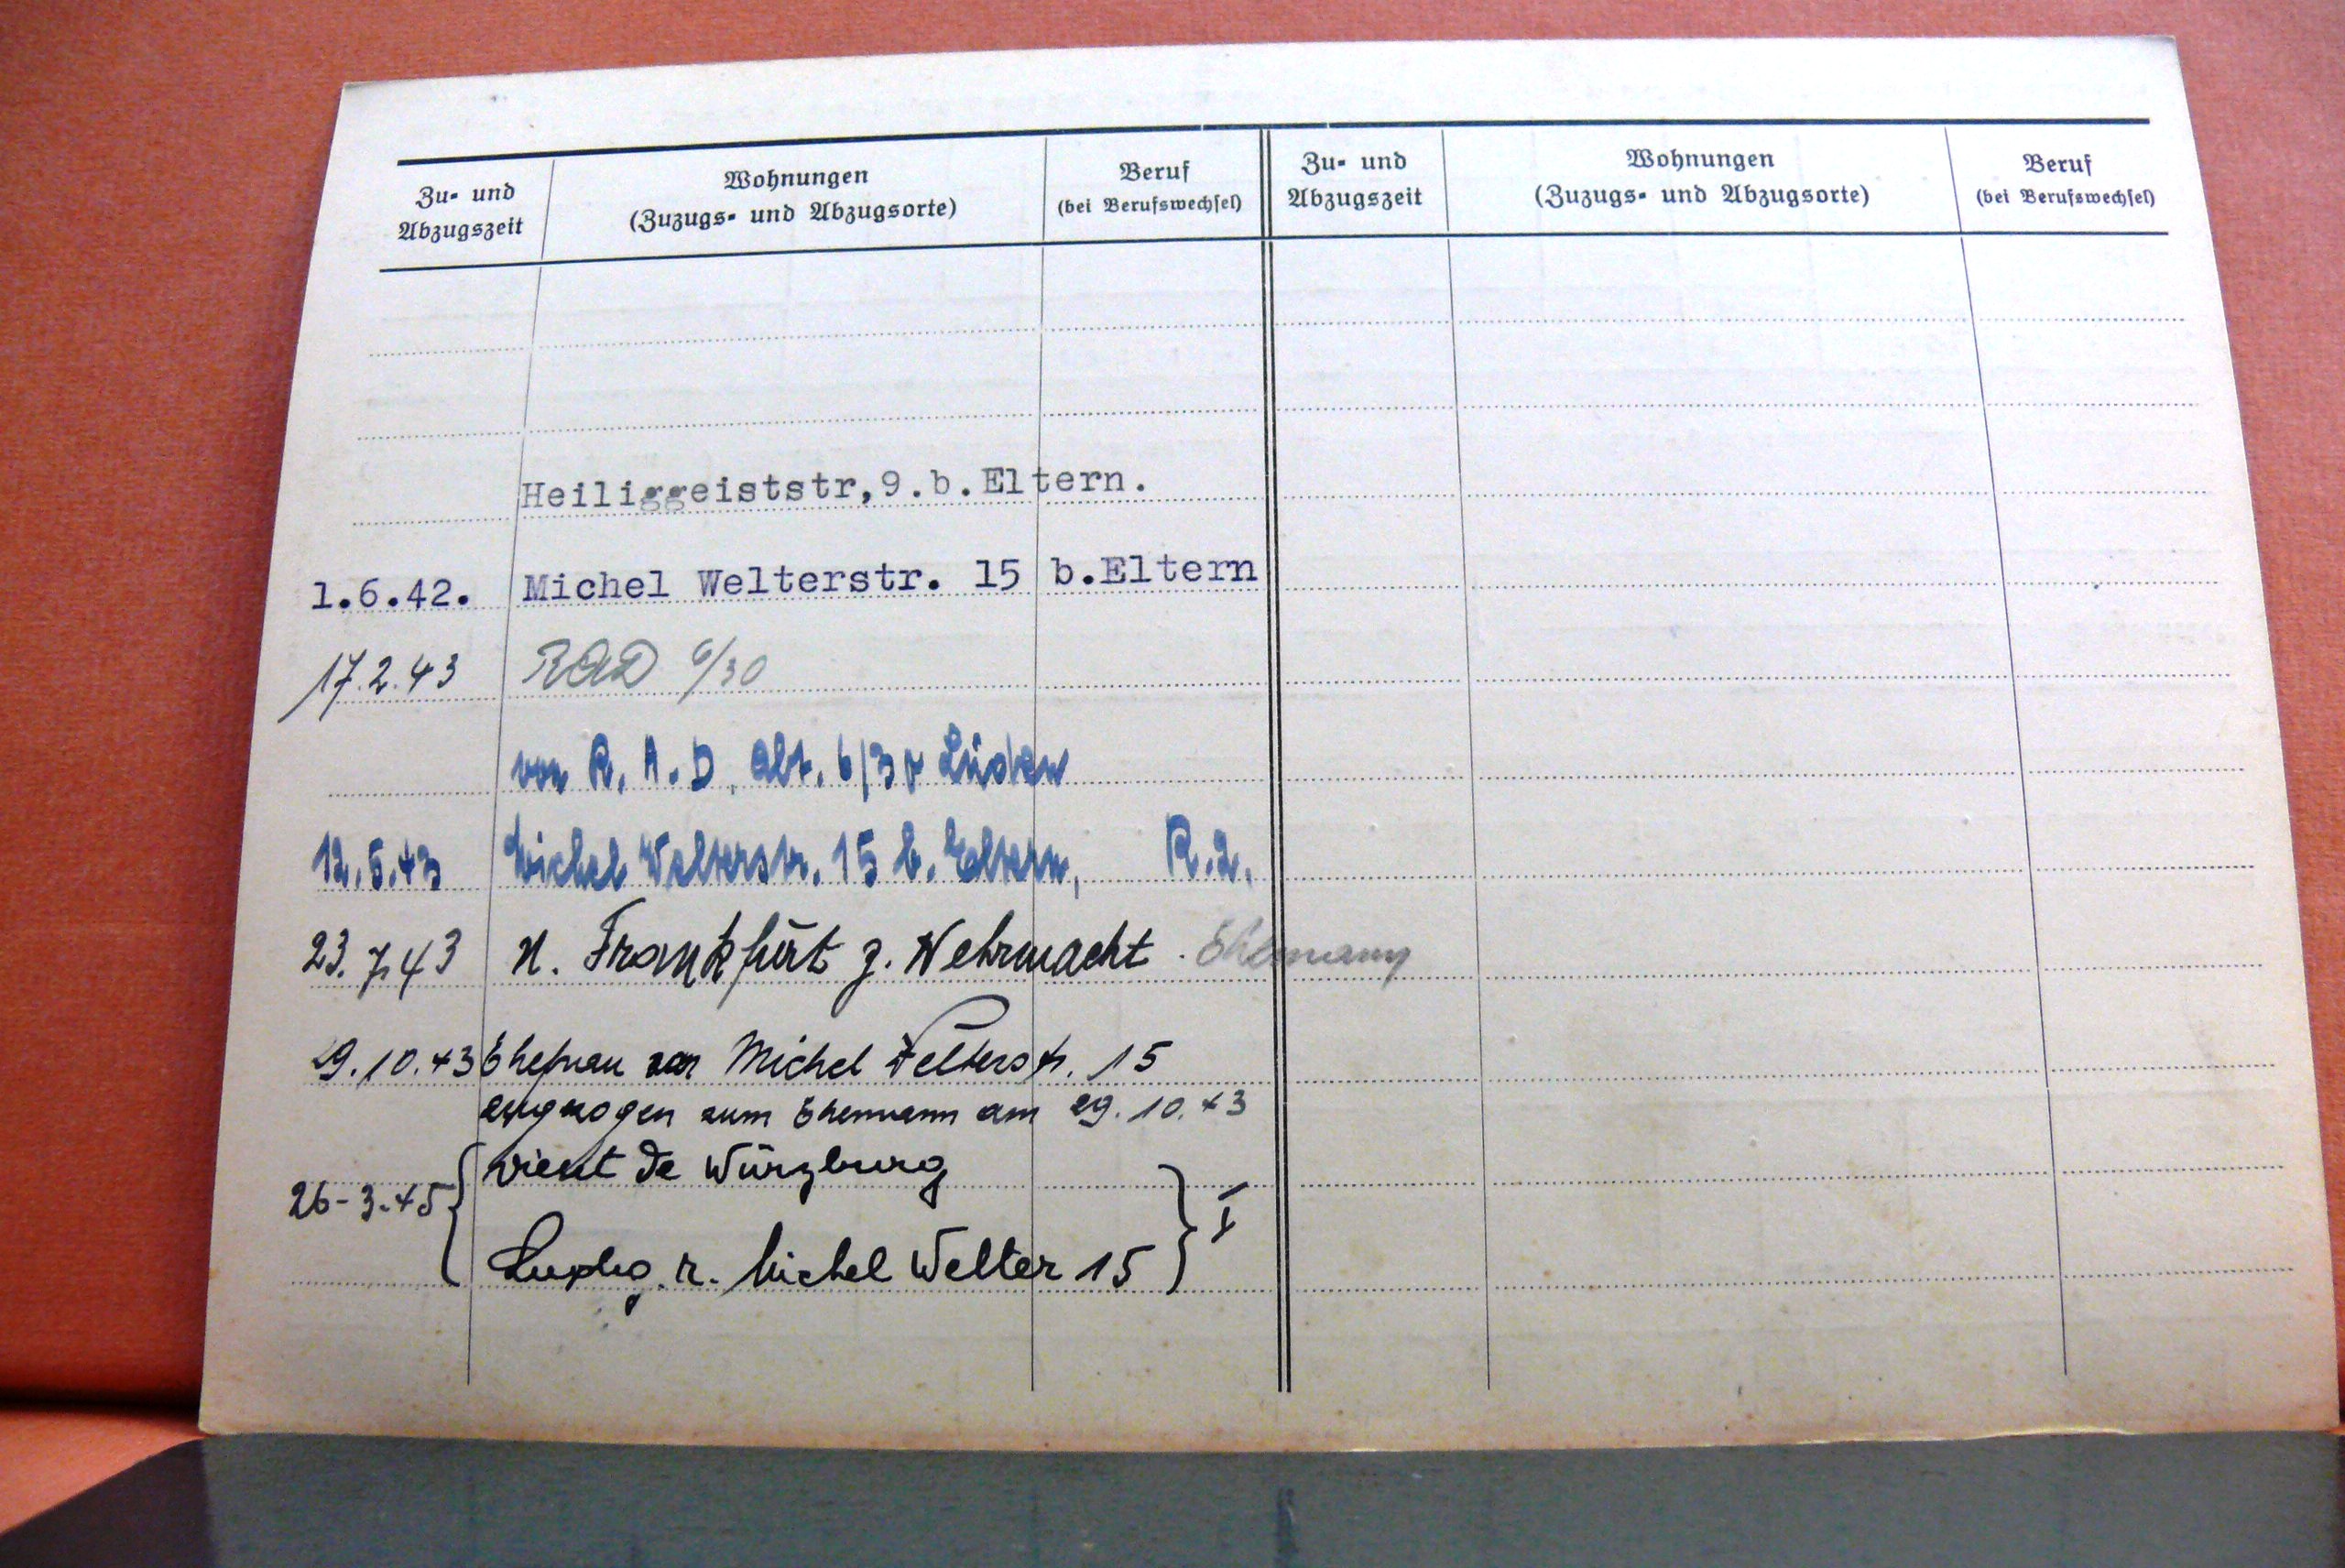 Zu- und Abzugszeit
Wohnungen (Zuzugs- und Abzugsorte)
Beruf (bei Berufswechsel)
Zu- und Abzugszeit
Wohnungen (Zuzugs- und Abzugsorte)
Beruf (bei Berufswechsel)
Heiliggeiststr,9.b.Eltern.
1.6.42. Michel Welterstr. 15 b.Eltern
17.2.43 RAD 6/30
von R.A.D. Abt. 6/30
12.5.43 Michel Welterstr. 15 b. Eltern, R.2.
23.7.43 n. Frankfurt z. Wehrmacht. Ehemann
29.10.43 Ehefrau von Michel Welterstr. 15
zum Ehemann am 29.10.43
26-3.45 vient de Würzburg
Luxbg. r. Michel Welter 15 I